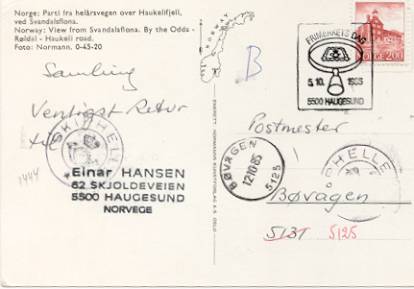 Norge: Parti fra helårsvegen over Haukelifjell,
ved Svandalsflona.
Norway: View from Svandalsflona. By the Odda -
Røldal - Haukeli road.
Foto: Normann. 0-45-20
NORWAY
B
FRIMERKETS DAG
5.10.1985
5500 HAUGESUND
NORGE 200
Samling
Vennligst Retur
SKJ HELLE
1444
Einar HANSEN
62 SKJOLDEVEIEN
5500 HAUGESUND
NORVEGE
ENERETT: NORMANNS KUNSTFORLAG A/S OSLO
Postmester
BØVÅGEN
12.10.85
5125
HELLE
Bøvågen
5137 5125